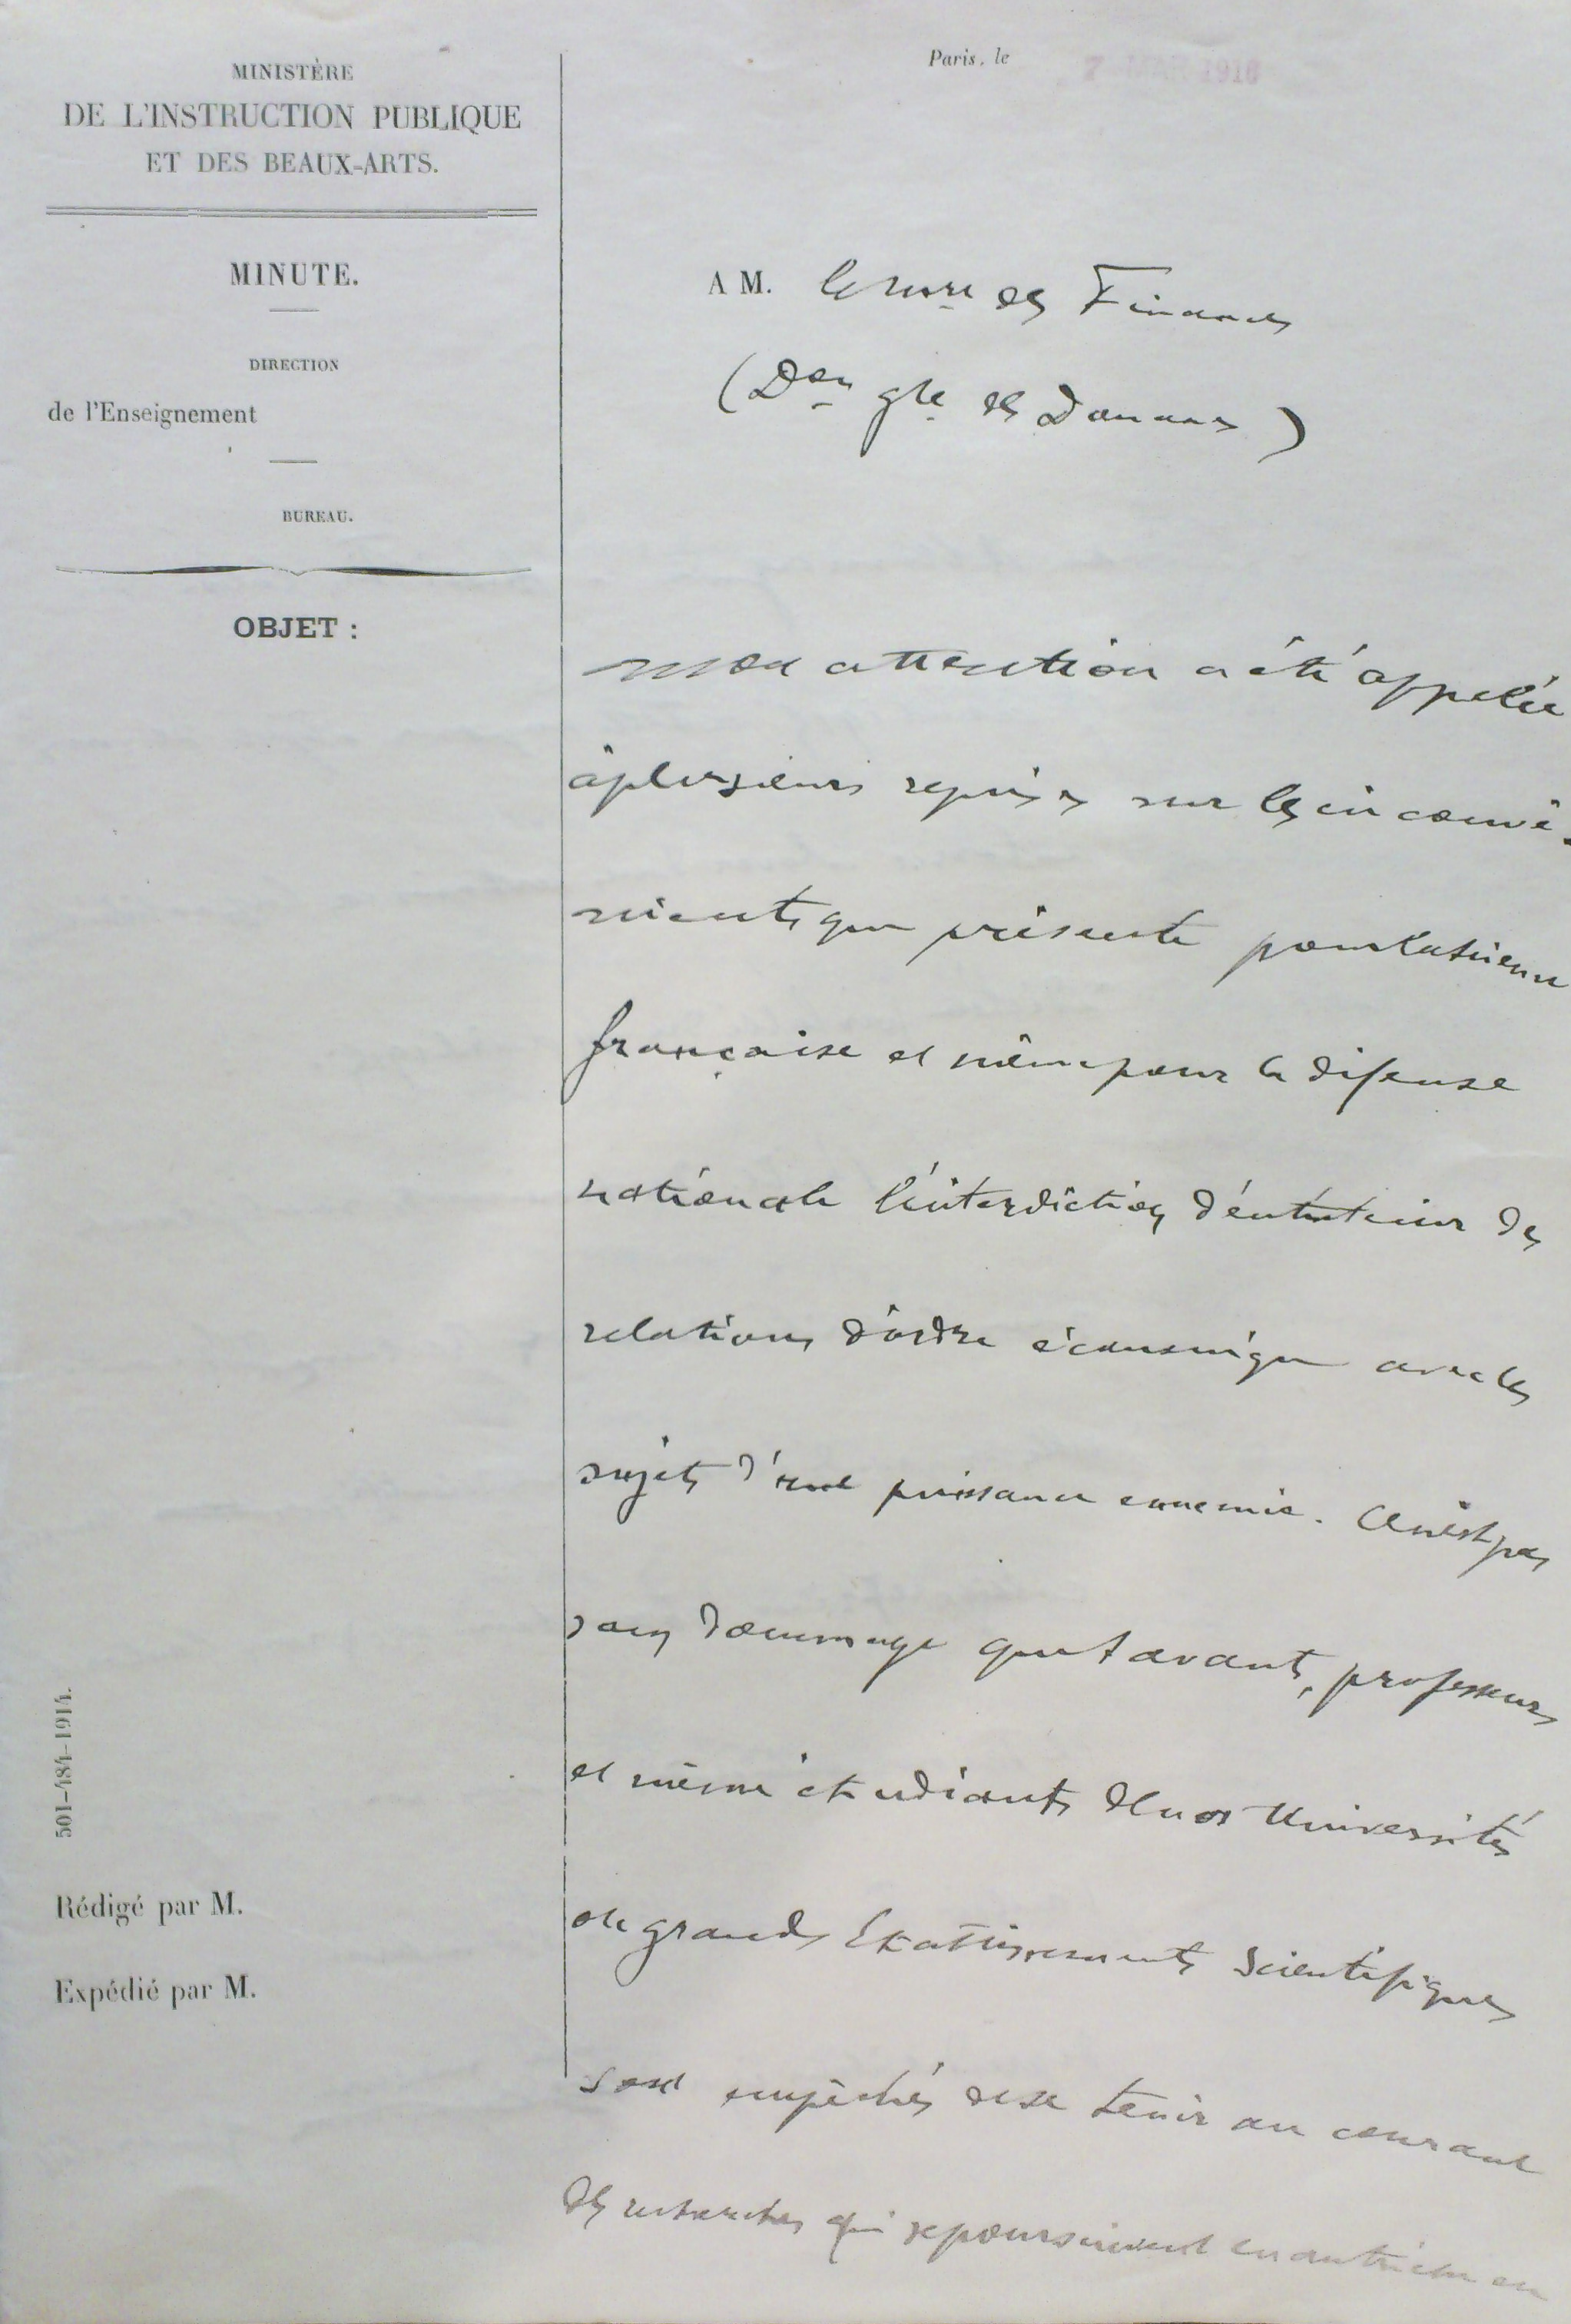 MINISTÈRE
DE L'INSTRUCTION PUBLIQUE
ET DES BEAUX-ARTS.
MINUTE.
DIRECTION
de l'Enseignement
BUREAU.
OBJET :
501-484-1914.
Rédigé par M.
Expédié par M.
Paris, le 7 MAR 1916
A M. le Mtre des Finances
(Don gle des Douanes)
Mon attention a été appelée
à plusieurs reprises sur les inconvé-
nients que présente pour la science
française et même pour la défense
nationale l'interdiction d'entretenir des
relations d'ordre économique avec les
sujets d'une puissance ennemie. Ce n'est pas
sans dommage que savants, professeurs
et même étudiants de nos Universités
ou grands Etablissements Scientifiques
sont empêchés de se tenir au courant
des recherches qui se poursuivent en Autriche ou